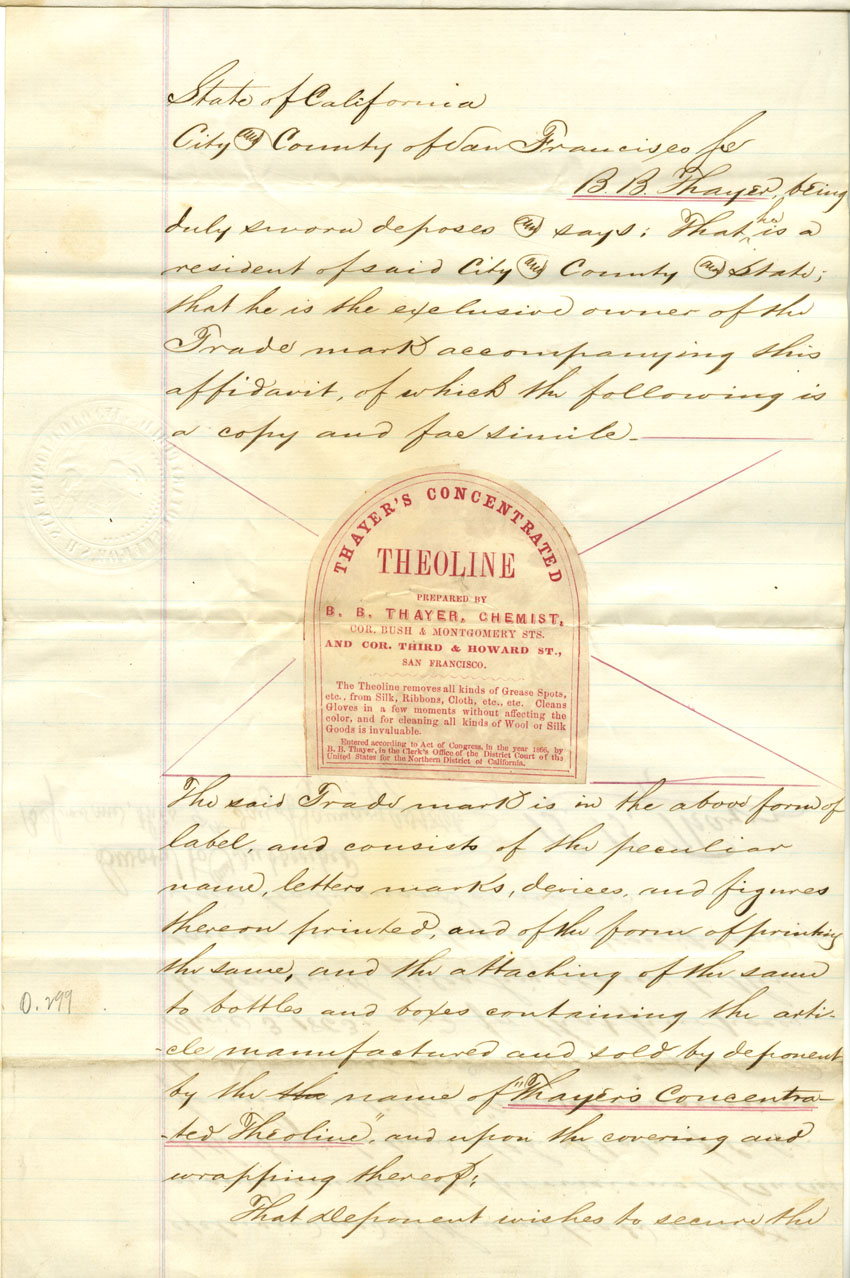 State of California
City and County of San Francisco ss
B. B. Thayer, being
duly sworn deposes and says: That he is a
resident of said City and County and State;
that he is the exclusive owner of the
Trade mark accompanying this
affidavit, of which the following is
a copy and fac simile_
THAYER'S CONCENTRATED
THEOLINE
PREPARED BY
B. B. THAYER, CHEMIST,
COR. BUSH & MONTGOMERY STS.
AND COR. THIRD & HOWARD ST.,
SAN FRANCISCO.
The Theoline removes all kinds of Grease Spots,
etc., from Silk, Ribbons, Cloth, etc., etc. Cleans
Gloves in a few moments without affecting the
color, and for cleaning all kinds of Wool or Silk
Goods is invaluable.
Entered according to Act of Congress, in the year 1866, by
B. B. Thayer, in the Clerk's Office of the District Court of the
United States for the Northern District of California.
The said Trade mark is in the above form of
label, and consists of the peculiar
name, letters marks, devices, and figures
thereon printed, and of the form of printing
the same, and the attaching of the same
to bottles and boxes containing the arti-
-cle manufactured and sold by deponent
by the the name of "Thayer's Concentra-
-ted Theoline", and upon the covering and
wrapping thereof;
That deponent wishes to secure the
O. 299